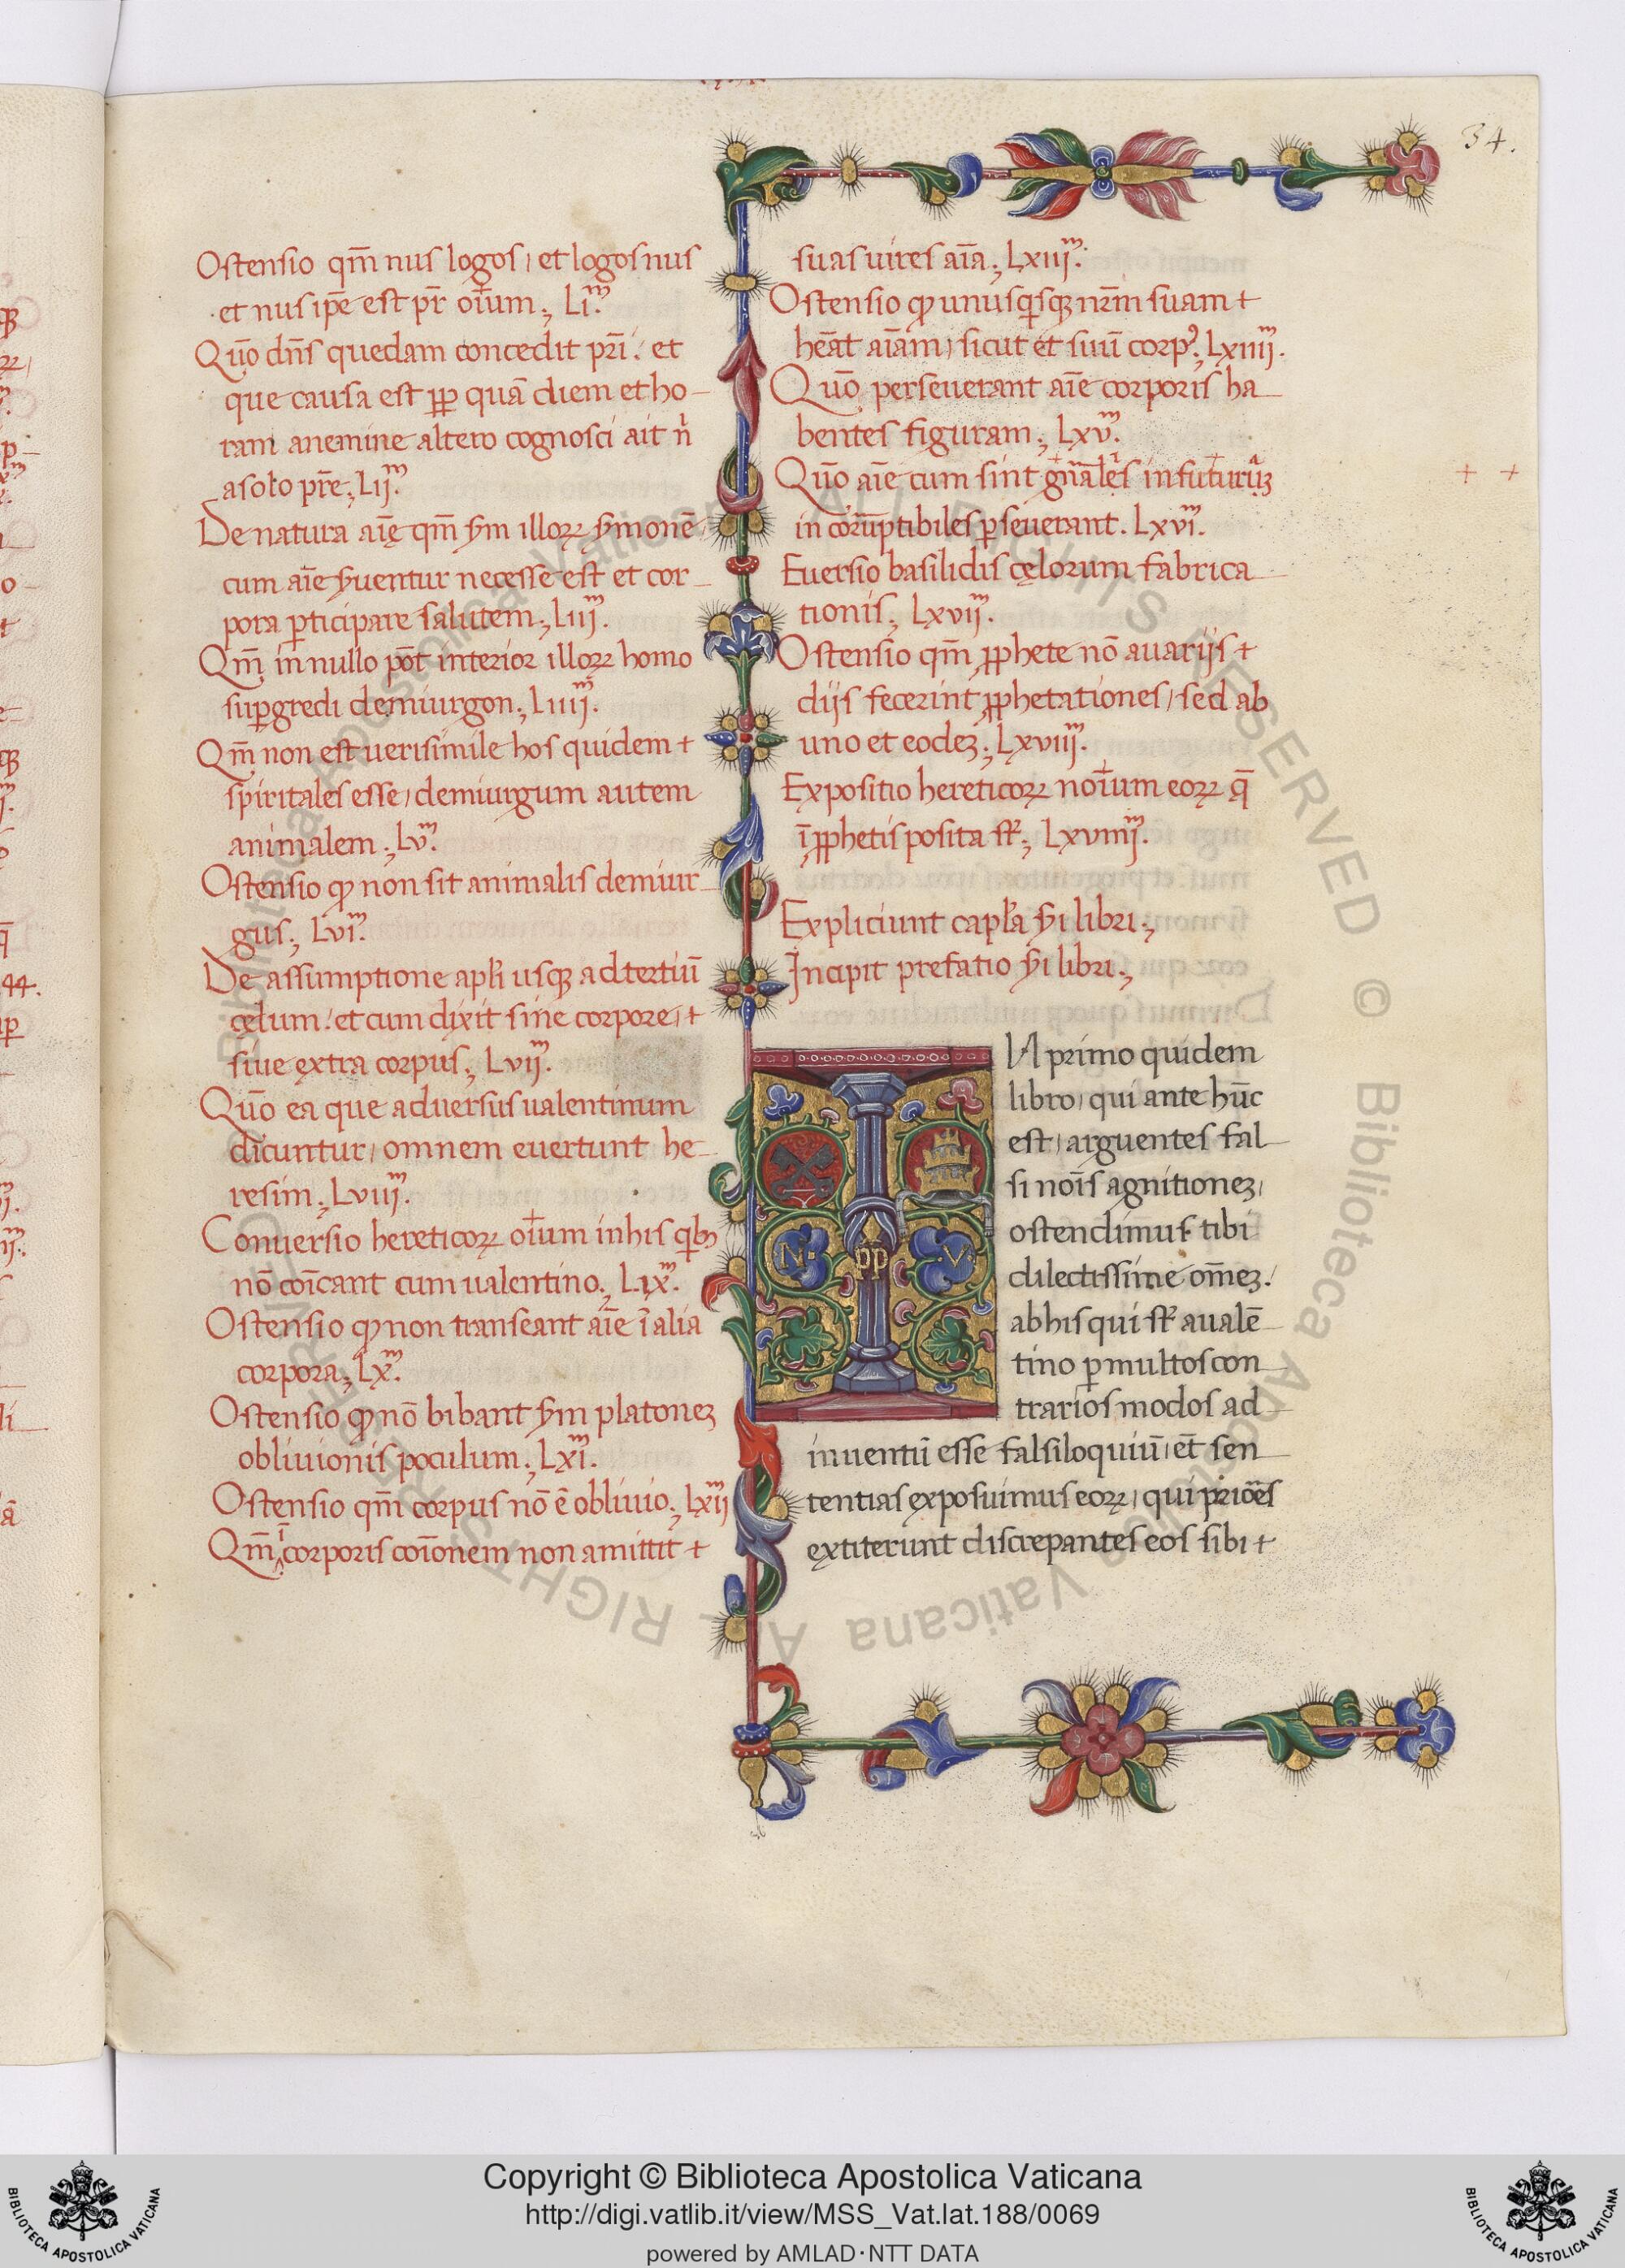 34.
Ostensio qm̄ nus logos, et logos nus
et nus ip̄e est pr̄ oīum; Lī.ᵐ
Quō dn̄s quedam concedit pr̄i: et
que causa est ꝓp quā diem et ho-
ram a nemine altero cognosci ait n̓
a solo pr̄e; Lij.ᵐ
De natura aīę qm̄ sm̄ illoꝝ smonē
cum aīe suentur necesse est et cor-
pora ꝑticipare salutem; Liij.ᵐ
Qm̄ in nullo pōt interior illoꝝ homo
suꝑgredi demiurgon; Liiij.ᵐ
Qm̄ non est uerisimile hos quidem +
spiritales esse, demiurgum autem
animalem; Lv.ᵐ
Ostensio ꝙ non sit animalis demiur-
gus; Lvi.ᵐ
De assumptione apl̄i usqꝫ ad tertiū
cęlum: et cum dixit sine corpore, +
siue extra corpus; Lvij.ᵐ
Quō ea que aduersus ualentinum
dicuntur, omnem euertunt he-
resim; Lviij.ᵐ
Conuersio hereticoꝝ oīum in his qͥbꝫ
nō coīcant cum ualentino; Lix.ᵐ
Ostensio ꝙ non transeant aīe ī alia
corpora; Lx.ᵐ
Ostensio ꝙ nō bibant sm̄ platoneꝫ
obliuionis poculum; Lxi.ᵐ
Ostensio qm̄ corpus nō ē obliuio; Lxijᵐ
Qm̄ ī corporis coīonem non amittit +
suas uires aīa; Lxiij.ᵐ
Ostensio ꝙ unusqͥsqꝫ nr̄m suam +
heāt aīam, sicut et suū corpꝰ; Lxiiij.ᵐ
Quō perseuerant aīe corporis ha-
bentes figuram; Lxv.ᵐ
Quō aīe cum sint gn̄ales in futurūꝫ
in corruptibiles ꝑseuerant. Lxvi.ᵐ
Euersio basilidis cęlorum fabrica-
tionis; Lxvij.ᵐ
Ostensio qm̄ ꝓphete nō a uarijs +
dijs fecerint ꝓphetationes, sed ab
uno et eodeꝫ; Lxviij.ᵐ
Expositio hereticoꝝ noīum eoꝝ q̄
ī ꝓphetis posita st̄; Lxviiij.ᵐ
Expliciunt capl̄a sͥi libri;
Incipit prefatio sͥi libri;
IN primo quidem
libro, qui ante hūc
est, arguentes fal-
si noīs agnitioneꝫ,
ostendimus tibi
dilectissime om̄eꝫ.
ab his qui st̄ a ualē-
tino ꝑ multos con-
trarios modos ad-
inuentū esse falsiloquiū, et̄ sen-
tentias exposuimus eoꝝ, qui priōes
extiterunt discrepantes eos sibi +
N. pp V.
Copyright © Biblioteca Apostolica Vaticana
http://digi.vatlib.it/view/MSS_Vat.lat.188/0069
powered by AMLAD·NTT DATA
BIBLIOTECA APOSTOLICA VATICANA
BIBLIOTECA APOSTOLICA VATICANA
© Biblioteca Apostolica Vaticana ALL RIGHTS RESERVED © Biblioteca Apostolica Vaticana ALL RIGHTS RESERVED